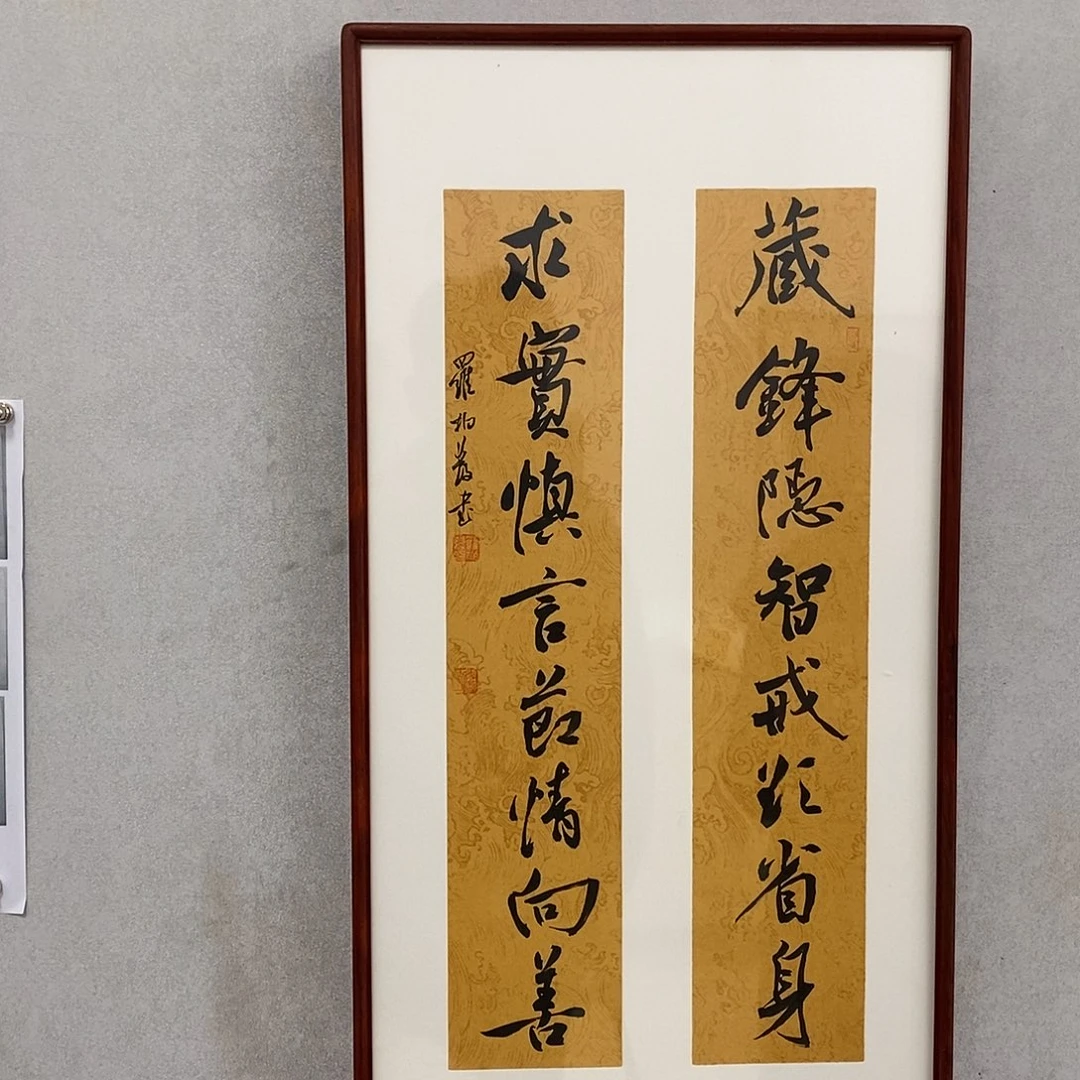 藏鋒隱智戒欺省身
求實慎言節情向善
羅 書